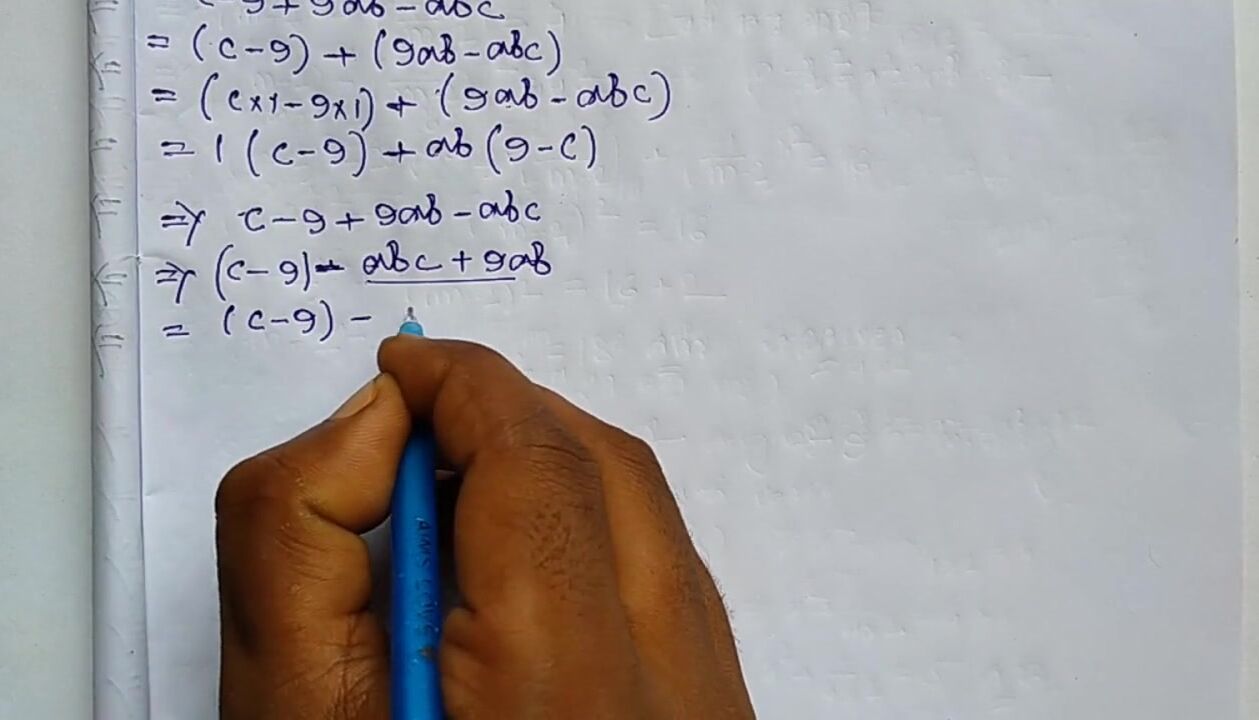 c-9+9ab-abc
= (c-9) + (9ab-abc)
= (c×1-9×1) + (9ab-abc)
= 1(c-9)+ab(9-c)
⇒ c-9+9ab-abc
⇒ (c-9)-abc+9ab
= (c-9) -